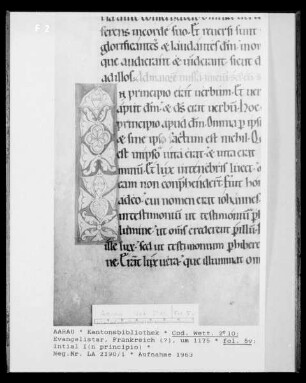 ferens in corde suo. Et reversi sunt
glorificantes & laudantes dm in om
que audierant & viderant. sicut d
ad illos.
N principio erat verbum. Et ver
apud dm. & ds erat verbu. Hoc
principio apud dm. Omnia p ips
& sine ipso factum est nichil. Q
est in ipso vita erat. & vita erat
minu. & lux in tenebris lucet.
eam non comphenderunt. Fuit ho
a deo. cui nomen erat iohannes.
in testimoniu ut testimonium p
lumine. ut oms crederent p illu.
ille lux. sed ut testimonium phibere
ne. Erat lux vera. que illuminat om
AARAU * Kantonsbibliothek * Cod. Wett. 2°10:
Evangelistar. Frankreich (?). um 1175 * fol. 5v:
Intial I(n principio) *
Neg.Nr. LA 2190/1 * Aufnahme 1963